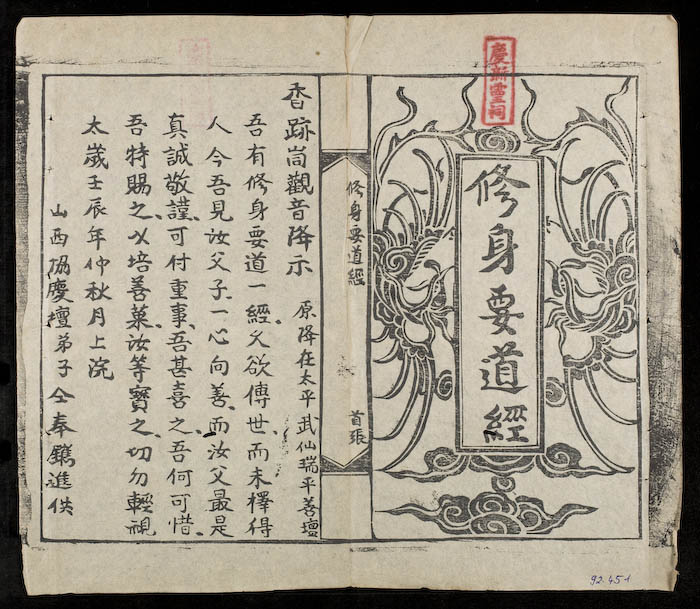 慶新靈祠
修身要道經
修身要道經 首張
香跡峝觀音降示 原降在太平武仙瑞平善壇
吾有修身要道一經久欲傳世而未擇得
人今吾見汝父子一心向善而汝父最是
真誠敬謹可付重事吾甚喜之吾何可惜
吾特賜之以培善菓汝等寶之切勿輕視
太歲壬辰年仲秋月上浣
山西協慶壇弟子仝奉鐫進供
92.451